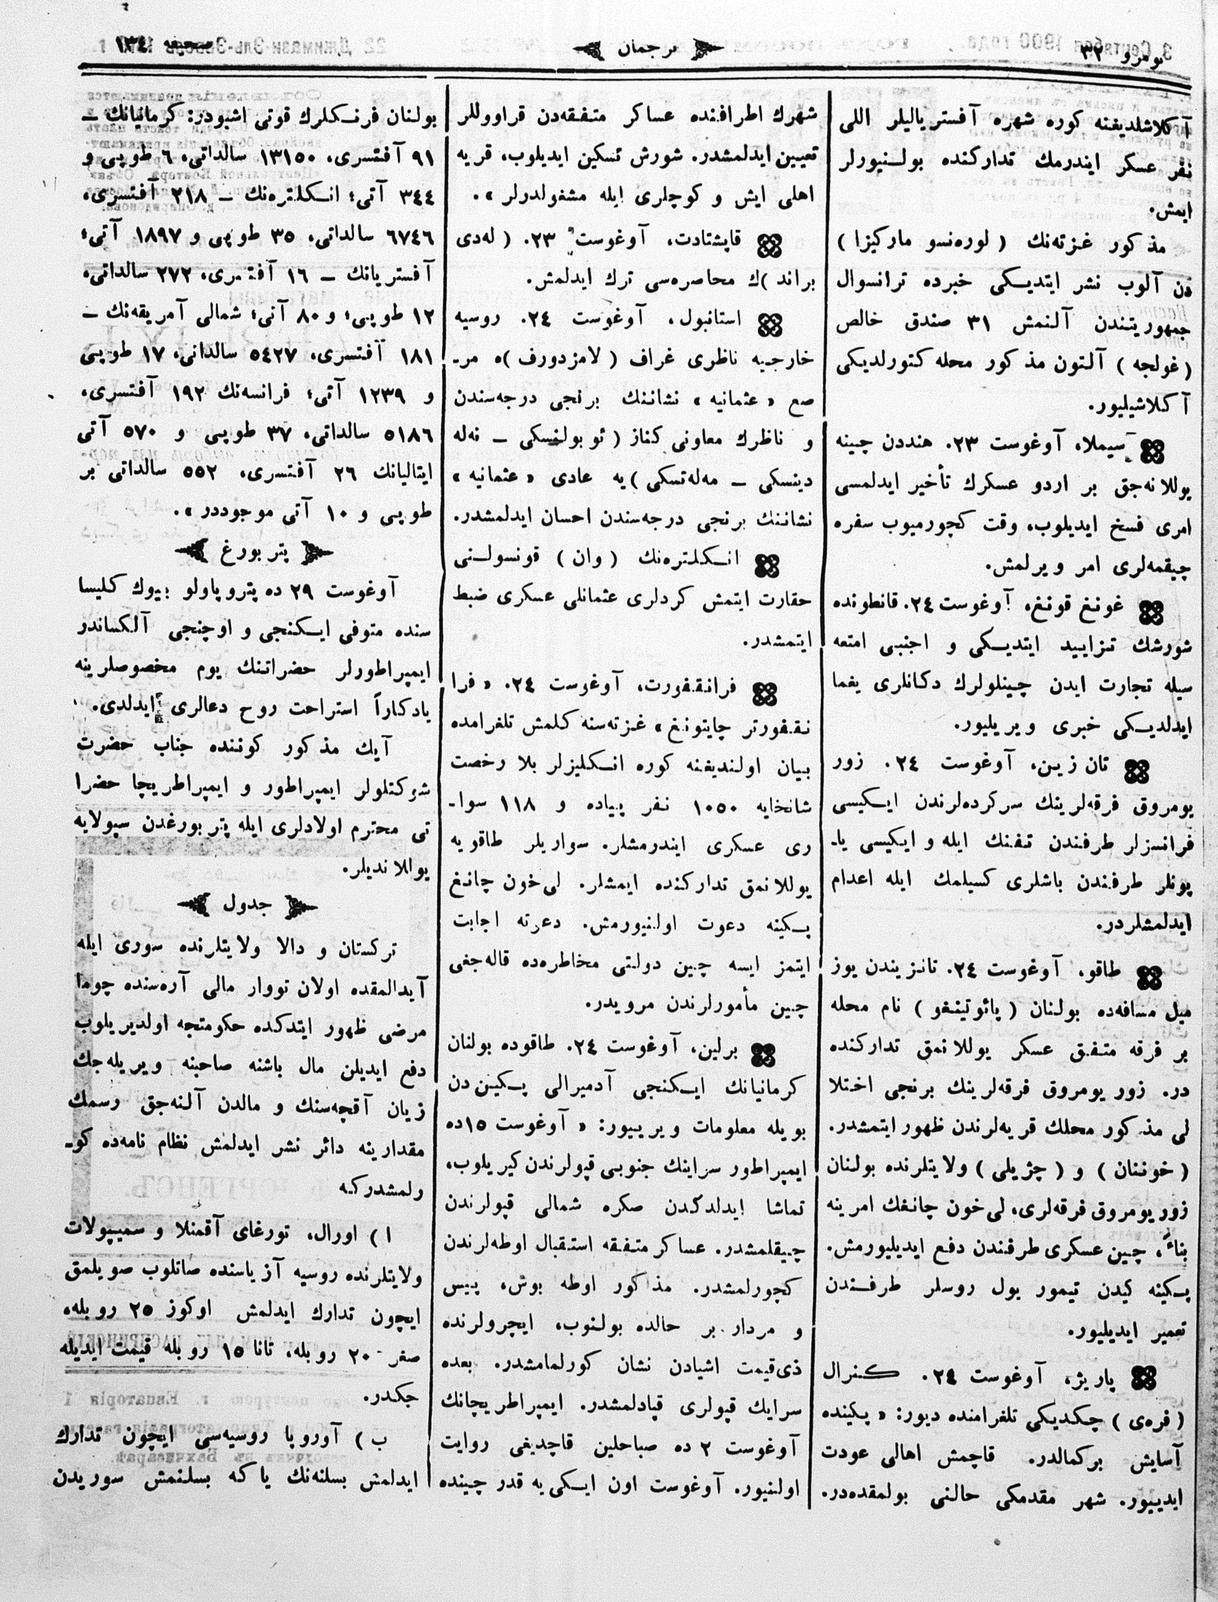 نومرو ٣٢
ترجمان
صحيفه ١٣٤
آكلاشلديغنه كوره شهره آفسترياليلر اللى
نفر عسكر ايندرمك تداركنده بولنيورلر
ايمش.
مذكور غزته‌نك ( لوره‌نسو ماركيزا )
دن آلوب نشر ايتديكى خبرده ترانسوال
جمهوريتندن آلنمش ٣١ صندق خالص
( غولجه ) آلتون مذكور محله كتورلديكى
آكلاشيليور.
سيملا، آوغوست ٢٣. هنددن چينه
يوللانه‌جق بر اردو عسكرك تأخير ايدلمسى
امرى فسخ ايديلوب، وقت كچورميوب سفره
چيقمه‌لرى امر ويرلمش.
غونغ قونغ، آوغوست ٢٤. قانطونده
شورشك تزاييد ايتديكى و اجنبى امتعه
سيله تجارت ايدن چينلولرك دكانلرى يغما
ايدلديكى خبرى ويريليور.
تان زين، آوغوست ٢٤. زور
يومروق فرقه‌لرينك سركرده‌لرندن ايكيسى
فرانسزلر طرفندن تفنك ايله و ايكيسى يا-
پونلر طرفندن باشلرى كسيلمك ايله اعدام
ايدلمشلردر.
طاقو، آوغوست ٢٤. تانزيندن يوز
ميل مسافه‌ده بولنان ( پائوتينغو ) نام محله
بر فرقه متفق عسكر يوللانمق تداركنده
در. زور يومروق فرقه‌لرينك برنجى اختلا
لى مذكور محلك قريه‌لرندن ظهور ايتمشدر.
( خونتان ) و ( چژيلى ) ولايتلرنده بولنان
زور يومروق فرقه‌لرى، لى‌خون چانغك امرينه
بناءً، چين عسكرى طرفندن دفع ايديليورمش.
پكينه كيدن تيمور يول روسلر طرفندن
تعمير ايديليور.
پاريژ، آوغوست ٢٤. كنرال
( فره‌ى ) چكديكى تلغرامنده ديور: « پكينده
آسايش بركمالدر. قاچمش اهالى عودت
ايدييور. شهر مقدمكى حالنى بولمقده‌در.
شهرك اطرافنده عساكر متفقه‌دن قراووللر
تعيين ايدلمشدر. شورش تسكين ايديلوب، قريه
اهلى ايش و كوچلرى ايله مشغولدرلر ».
قاپشتادت، آوغوست ٢٣. ( له‌دى
براند )ك محاصره‌سى ترك ايدلمش.
استانبول، آوغوست ٢٤. روسيه
خارجيه ناظرى غراف ( لامزدورف )ه مر-
صع « عثمانيه » نشاننك برنجى درجه‌سندن
و ناظرك معاونى كناز ( ئوبولنسكى — نه‌له
دينسكى — مه‌له‌تسكى )يه عادى « عثمانيه »
نشاننك برنجى درجه‌سندن احسان ايدلمشدر.
انكلتره‌نك ( وان ) قونسولنى
حقارت ايتمش كردلرى عثمانلى عسكرى ضبط
ايتمشدر.
فرانقفورت، آوغوست ٢٤. « فرا
نقفورتر چايتونغ » غزته‌سنه كلمش تلغرامده
بيان اولنديغنه كوره انكليزلر بلا رخصت
شانخايه ١٠٥٠ نفر پياده و ١١٨ سوا-
رى عسكرى ايندرمشلر. سواريلر طاقويه
يوللانمق تداركنده ايمشلر. لى‌خون چانغ
پكينه دعوت اولنيورمش. دعوته اجابت
ايتمز ايسه چين دولتى مخاطره‌ده قاله‌جغى
چين مأمورلرندن مرويدر.
برلين، آوغوست ٢٤. طاقوده بولنان
كرمانيانك ايكنجى آدميرالى پكين‌دن
بويله معلومات ويرييور: « آوغوست ١٥ده
ايمپراطور سراينك جنوبى قپولرندن كيريلوب،
تماشا ايدلدكدن صكره شمالى قپولرندن
چيقلمشدر. عساكر متفقه استقبال اوطه‌لرندن
كچورلمشدر. مذاكور اوطه بوش، پيس
و مردار بر حالده بولنوب، ايچرولرنده
ذى‌قيمت اشيادن نشان كورلمامشدر. بعده
سرايك قپولرى قپادلمشدر. ايمپراطريچانك
آوغوست ٢ ده صباحلين قاچديغى روايت
اولنيور. آوغوست اون ايكى‌يه قدر چينده
بولنان فرنكلرك قوتى اشبودر: كرمانيانك —
٩١ آفتسرى، ١٣١٥٠ سالداتى، ٦ طوپى و
٣٤٤ آتى؛ انكلتره‌نك — ٢١٨ آفتسرى،
٦٧٤٦ سالداتى، ٣٥ طوپى و ١٨٩٧ آتى؛
آفستريانك — ١٦ آفتسرى، ٢٧٢ سالداتى،
١٢ طوپى؛ و ٨٠ آتى؛ شمالى آمريقه‌نك —
١٨١ آفتسرى، ٥٤٢٧ سالداتى، ١٧ طوپى
و ١٢٣٩ آتى؛ فرانسه‌نك ١٩٢ آفتسرى،
٥١٨٦ سالداتى، ٣٧ طوپى و ٥٧٠ آتى
ايتاليانك ٢٦ آفتسرى، ٥٥٢ سالداتى بر
طوپى و ١٠ آتى موجوددر ».
پتربورغ
آوغوست ٢٩ ده پتروپاولو بيوك كليسا
سنده متوفى ايكنجى و اوچنجى آلكساندر
ايمپراطورلر حضراتنك يوم مخصوصلرينه
يادكاراً استراحت روح دعالرى ايدلدى.
آيك مذكور كوننده جناب حضرت
شوكتلولر ايمپراطور و ايمپراطريچا حضرا
تى محترم اولادلرى ايله پتربورغدن سپولايه
يوللانديلر.
جدول
تركستان و دالا ولايتلرنده سورى ايله
آيدالمقده اولان تووار مالى آره‌سنده چوما
مرضى ظهور ايتدكده حكومتجه اولديريلوب
دفع ايديلن مال باشنه صاحبنه ويريله‌جك
زيان آقچه‌سنك و مالدن آلنه‌جق رسمك
مقدارينه دائر نشر ايدلمش نظام نامه‌ده كو-
رلمشدركه
ا ) اورال، تورغاى آقمنلا و سميپولات
ولايتلرنده روسيه آزياسنده صاتلوب صويلمق
ايچون تدارك ايدلمش اوكوز ٢٥ روبله،
صغر ٢٠ روبله، تانا ١٥ روبله قيمت ايديله
جكدر.
ب ) آوروپا روسيه‌سى ايچون تدارك
ايدلمش بسلنه‌نك ياكه بسلنمش سوريدن